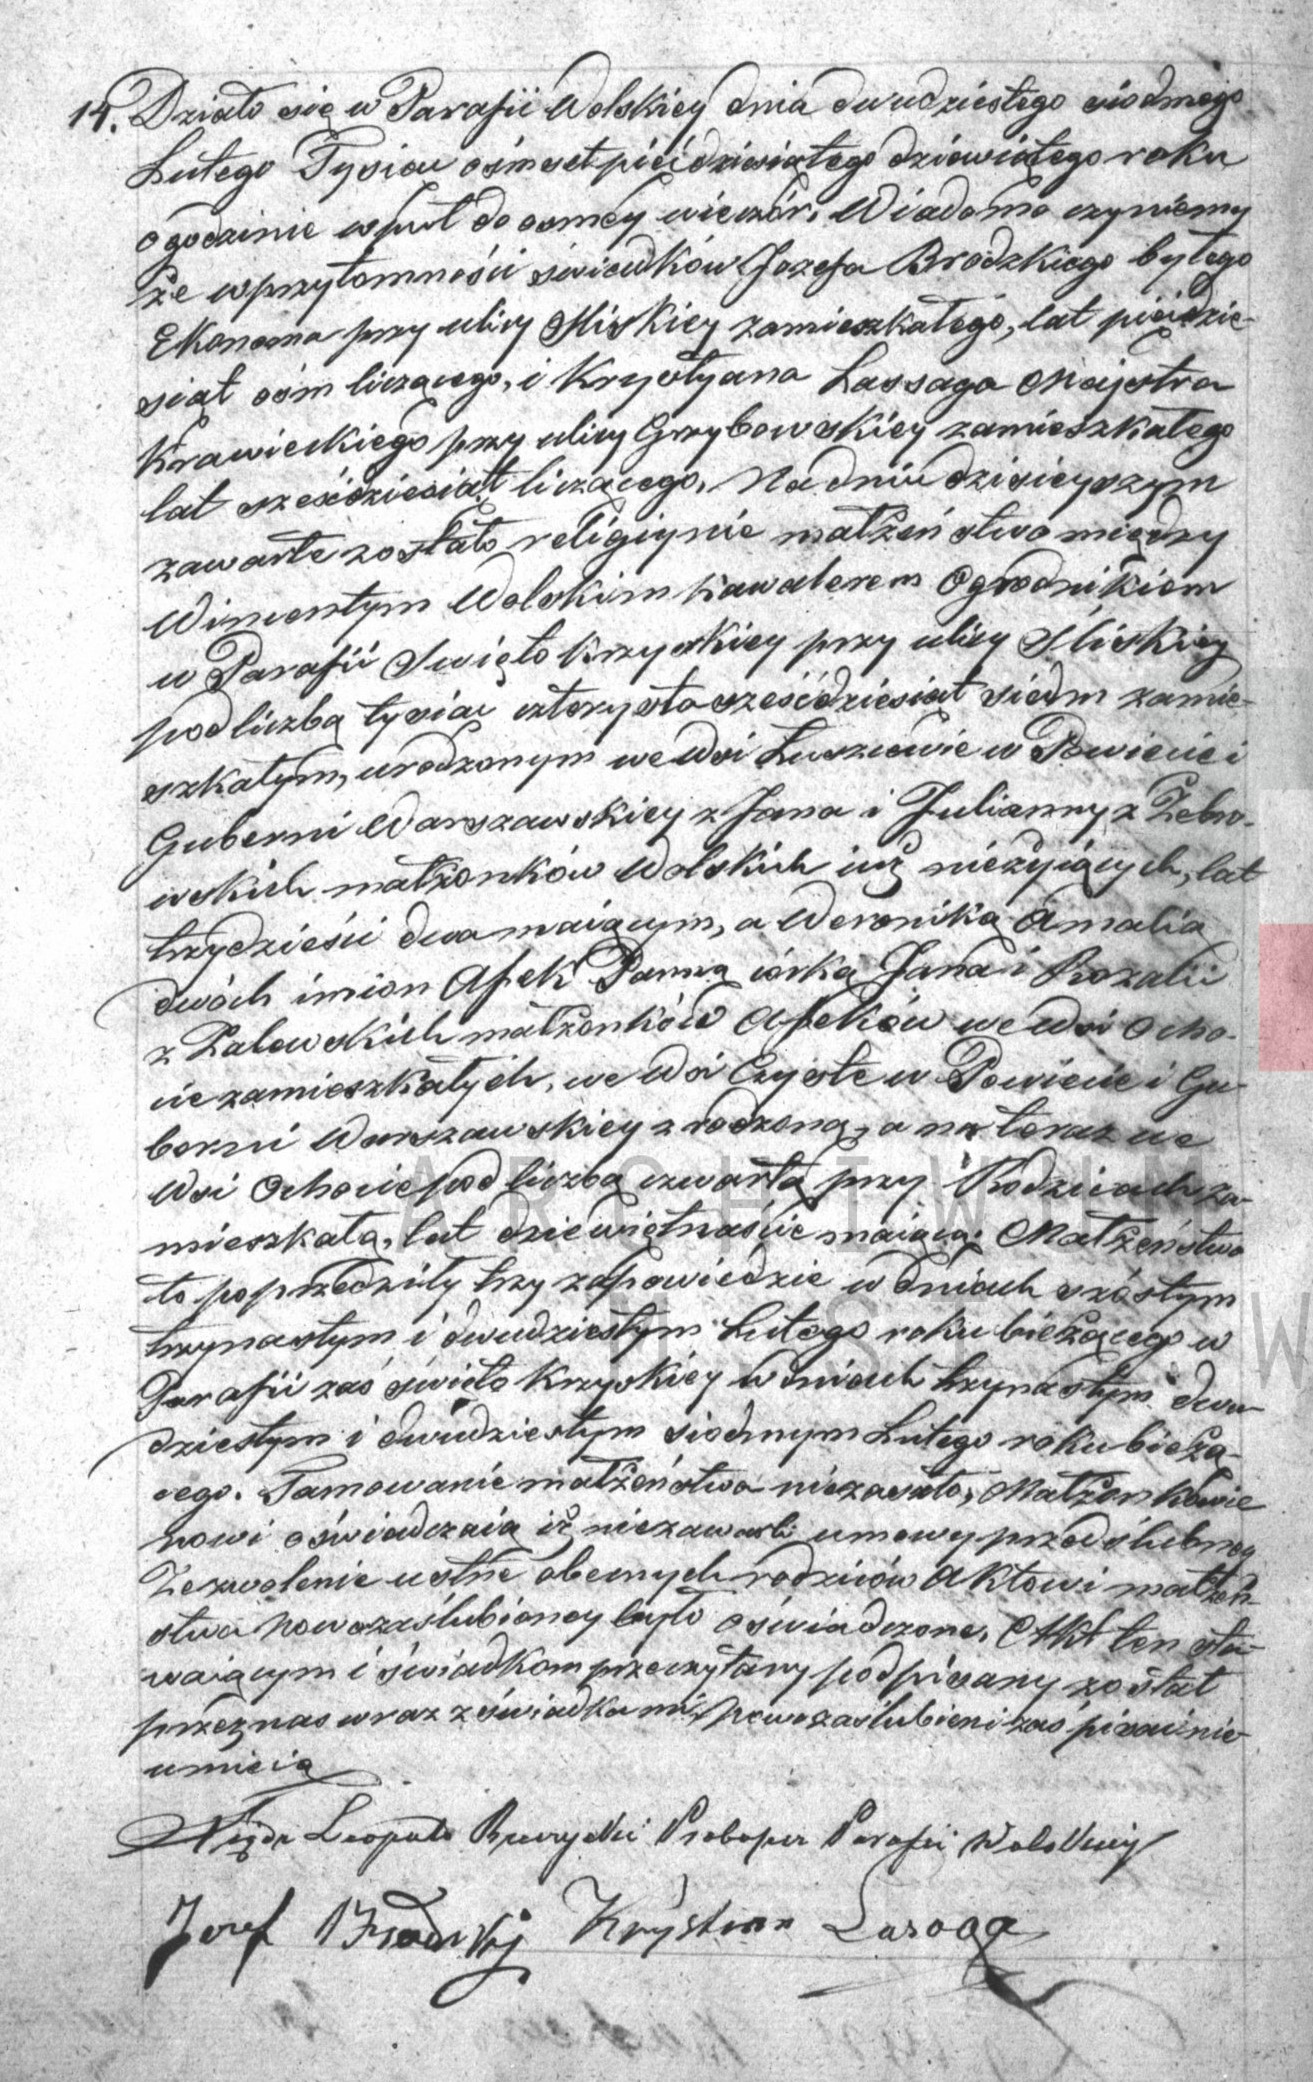 14. Działo się w Parafii Wolskiey dnia dwudziestego siodmego
Lutego Tysiac ośmset pięćdziesiątego dziewiątego roku
o godzinie wpuł do osmey wieczór. Wiadomo czyniemy
że w przytomności świadków Jozefa Brodzkiego byłego
Ekonoma przy ulicy Sliskiey zamieszkałego, lat pięćdzie-
siąt ośm liczącego, i Krystyana Lassaga Majstra
Krawieckiego przy ulicy Grzybowskiey zamieszkałego
lat sześćdziesiąt liczącego, Na dniu dzisieyszym
zawarte zostało religiynie małżeństwo między
Wincentym Wolskim Kawalerem Ogrodnikiem
w Parafii Swięto Krzyskiey przy ulicy Sliskiey
pod liczbą tysiac czterysta sześćdziesiąt siedm zamie-
szkałym, urodzonym we Wsi Łuszczewie w Powiecie i
Guberni Warszawskiey z Jana i Julianny z Żebro-
wskich małżonków Wolskich iuż nieżyiących, lat
trzydzieści dwa maiącym, a Weroniką Amalią
dwóch imion Afek Panną córką Jana i Rozalii
z Zalewskich małżonków Afeków we Wsi Ocho-
cie zamieszkałych, we Wsi Czyste w Powiecie i Gu-
berni Warszawskiey zrodzoną, a na teraz we
Wsi Ochocie pod liczbą czwartą przy Rodzicach za-
mieszkałą, lat dziewiętnaście maiącą. Małżeństwo
to poprzedziły trzy zapowiedzie w dniach szóstym
trzynastym i dwudziestym Lutego roku bieżącego w
Parafii zaś Święto Krzyskiey w dniach trzynastym dwu-
dziestym i dwudziestym siodmym Lutego roku bieżą-
cego. Tamowanie małżeństwa niezaszło, Małżonkowie
nowi oświadczaią iż niezawarli umowy przedślubney
Zezwolenie ustne obecnych rodziców Aktowi małżeń-
stwa nowozaślubioney było oświadczone. Akt ten sta-
waiącym i świadkom przeczytany podpisany został
przez nas wraz z świadkami, nowozaślubieni zaś pisać nie
umieią
Xiądz Leopold Proboszcz Parafii Wolskiey
Jozef Brodzkij Krystian Lasaga
ARCHIWUM
M. ST. W